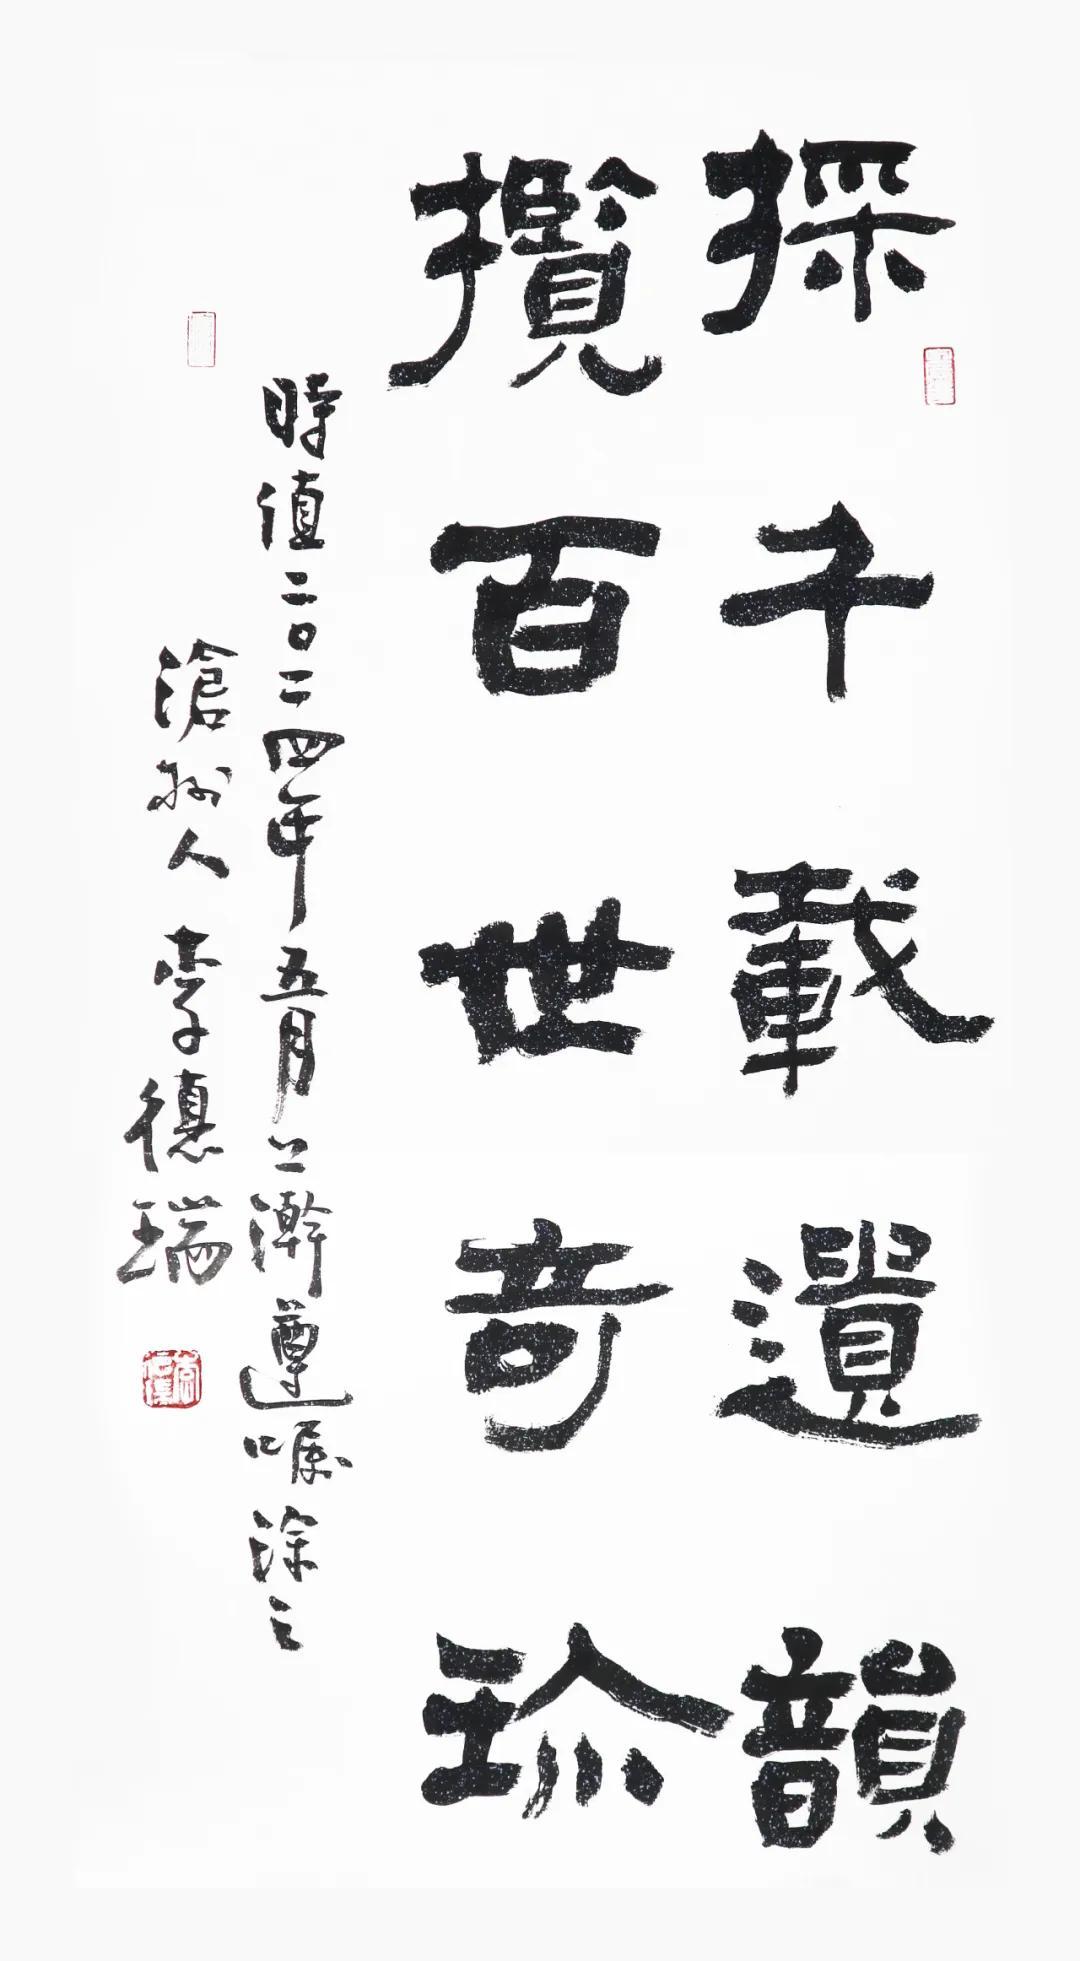 採千載遺韻
攬百世奇珍
時值二〇二四年五月上澣遵嘱涂之
滄州人李德瑞